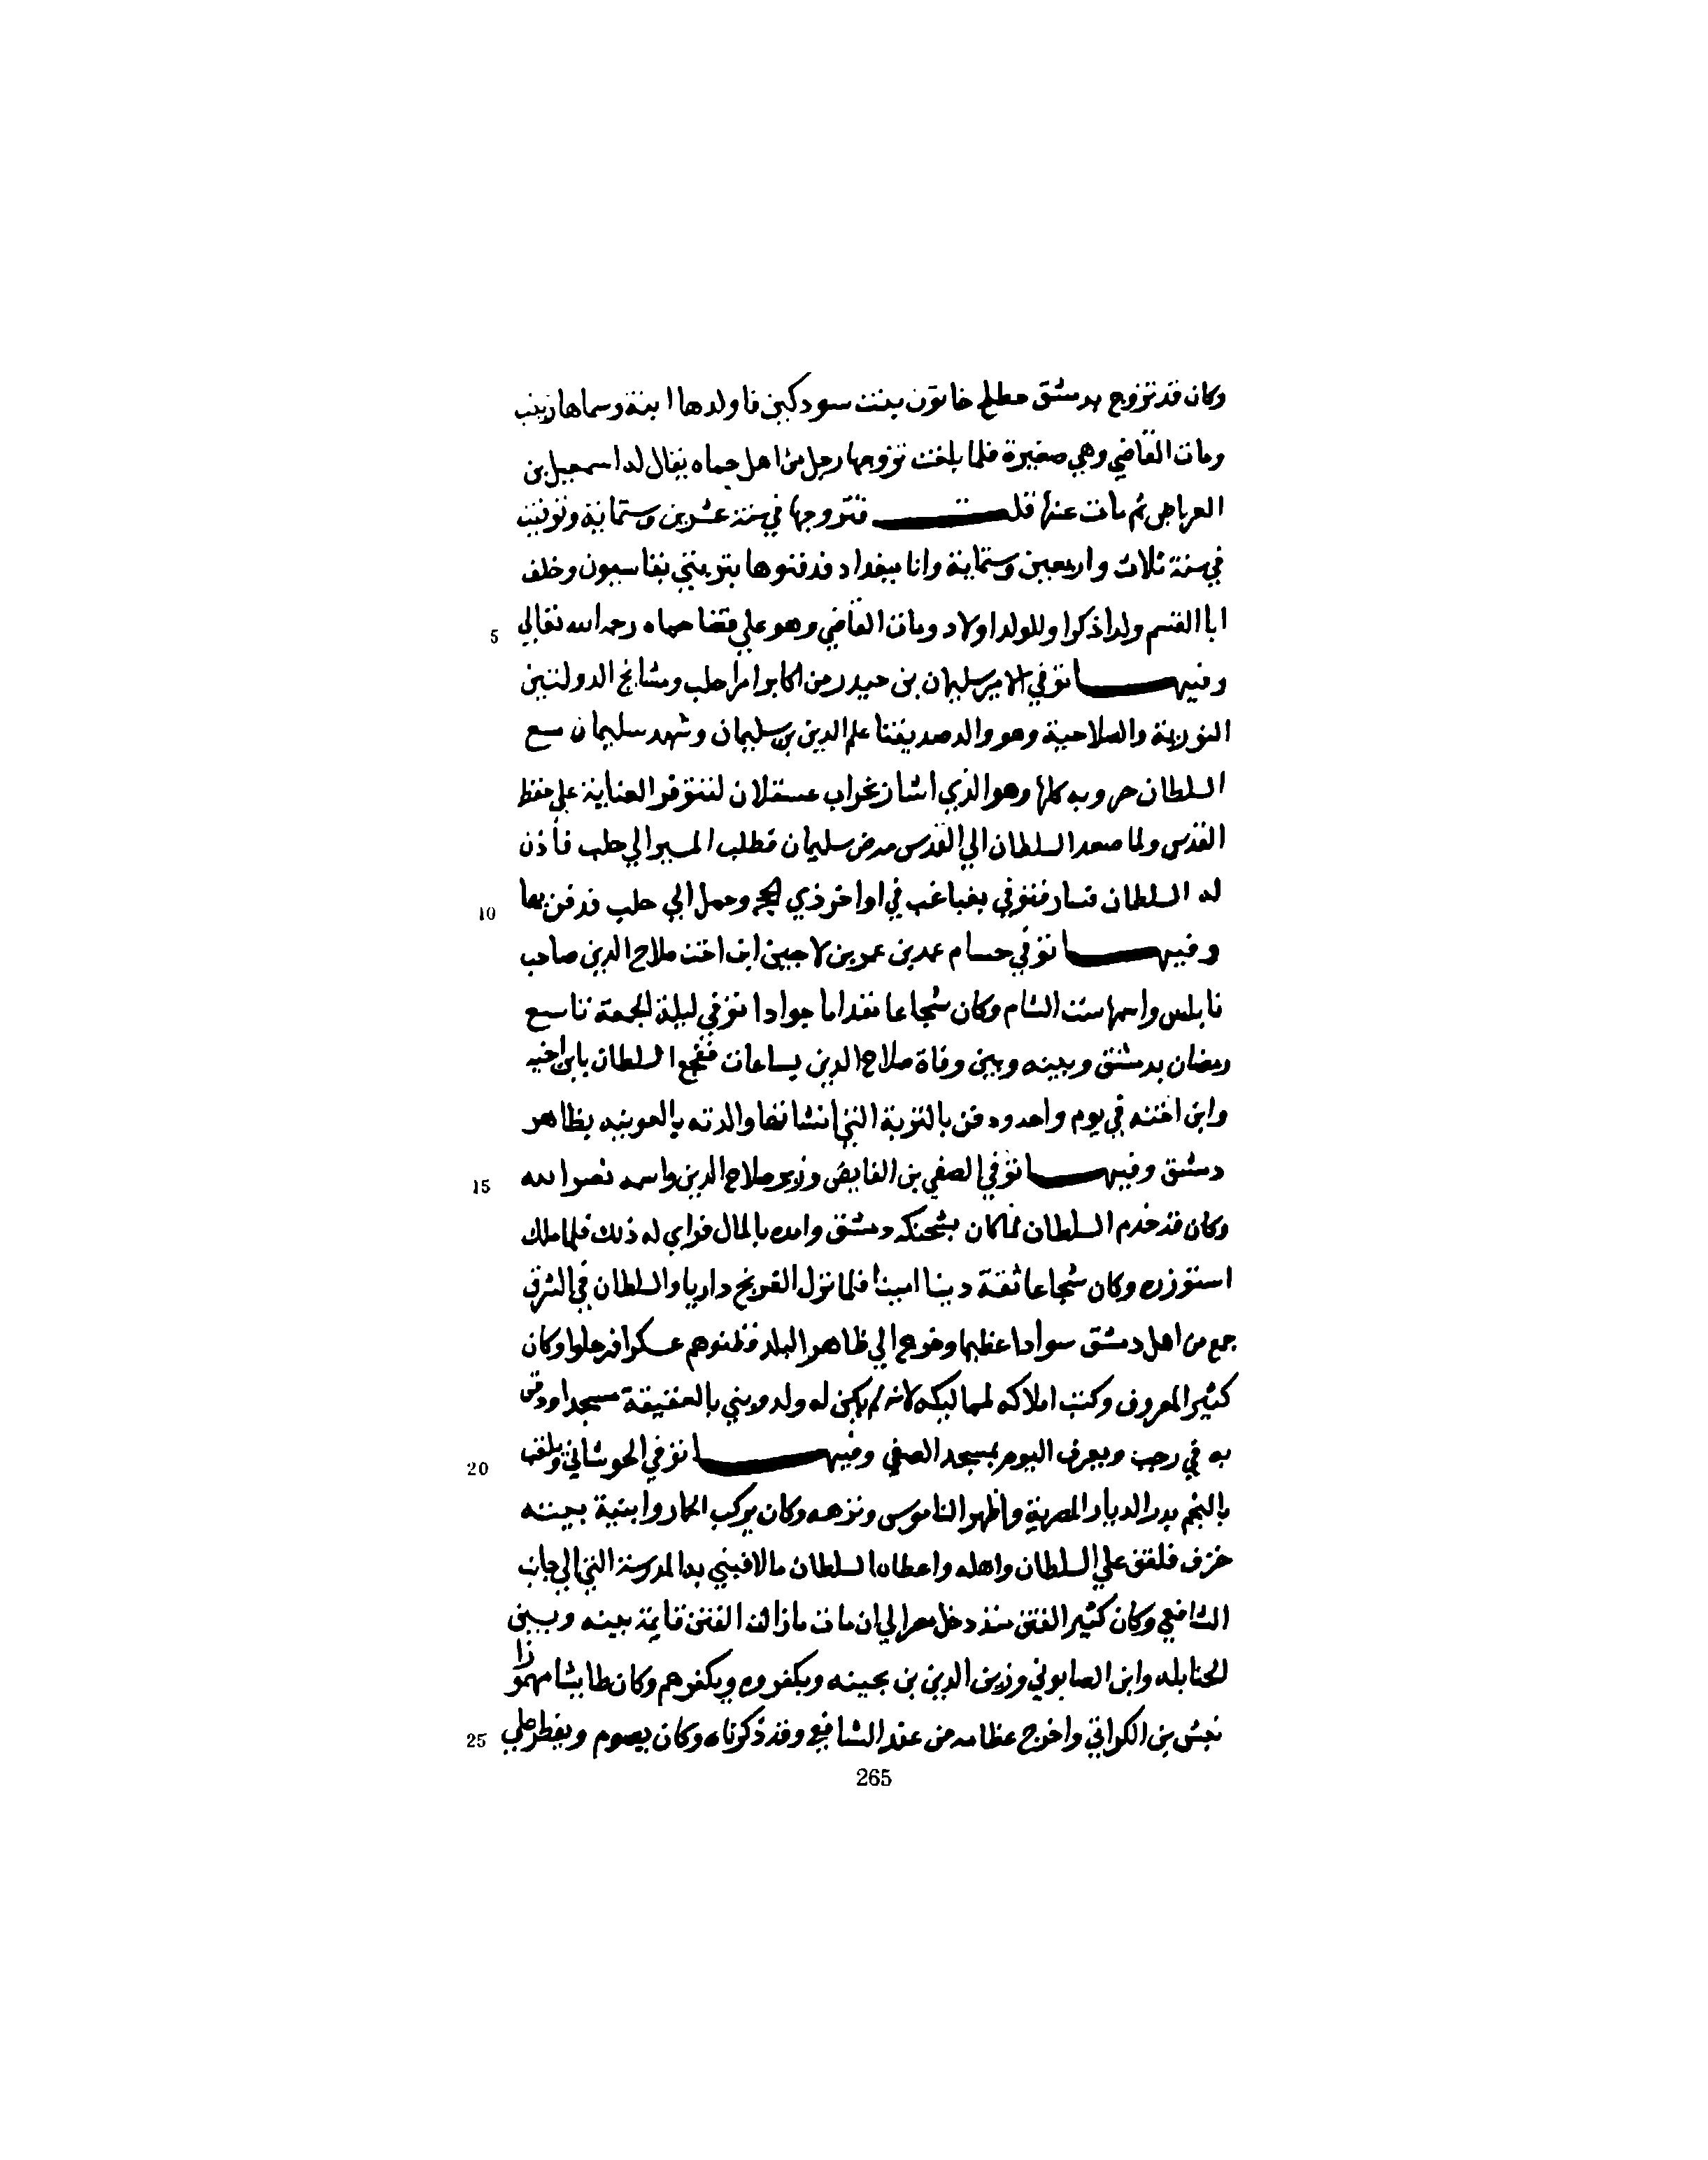 وكان قد تزوج بدمشق خاتون بنت سودكين فاولدها ابنة وسماها زينب
ومات القاضي وهي صغيرة فلما بلغت تزوجها رجل من اهل حماه يقال له اسمعيل بن
ثم مات عنها قلت فتزوجها في سنة عشرين وستماية وتوفيت
في سنة ثلاث واربعين وستماية وانا ببغداد فدفنوها بتربتي بقاسيون وخلف
ابا القسم ولدا ذكرا وللولد اولاد ومات القاضي وهو علي قضا حماه رحمه الله تعالي
5
وفيها توفي الامير سليمان بن حيدر من اكابر امرا حلب ومشايخ الدولتين
النورية والصلاحية وهو والد صديقنا علم الدين بن سليمان وشهد سليمان مع
السلطان حروبه كلها وهو الذي اشار بخراب عسقلان لتتوفر العناية علي حفظ
القدس ولما صعد السلطان الي القدس مرض سليمان فطلب المسير الي حلب فأذن
له السلطان فسار فتوفي بغباغب في اواخر ذي الحجة وحمل الي حلب فدفن بها
10
وفيها توفي حسام محمد بن عمر بن لاجين ابن اخت صلاح الدين صاحب
نابلس واسمها ست الشام وكان شجاعا مقداما جوادا توفي ليلة الجمعة تاسع
رمضان بدمشق وبينه وبين وفاة صلاح الدين ساعات ففجع السلطان بابن اخيه
وابن اخته في يوم واحد ودفن بالتربة التي انشاتها والدته بالعوينه بظاهر
دمشق وفيها توفي الصفي بن القابض وزير صلاح الدين واسمه نصر الله
15
وكان قد خدم السلطان لما كان بشحنكه دمشق وامده بالمال فراي له ذلك فلما ملك
استوزره وكان شجاعا ثقة دينا امينا فلما نزل الفرنج داريا والسلطان في الشرق
جمع من اهل دمشق سوادا عظيما وخرج الي ظاهر البلد فظنوهم عسكرا فرحلوا وكان
كثير المعروف وكتب املاكه لمماليكه لانه لم يكن له ولد وبني بالعقيبة مسجدا ودفن
به في رجب ويعرف اليوم بمسجد الصفي وفيها توفي الخوشاني ويلقب
20
بالنجم الديار المصرية واظهر الناموس وتزهد وكان يركب الحمار وابنية بيته
خزف فلفق علي السلطان واهله واعطاه السلطان مالا فبني به المدرسة التي الي جانب
الشافعي وكان كثير الفتن منذ دخل مصر الي ان مات مازالت الفتن قايمة بينه وبين
الحنابله وابن الصابوني وزين الدين بن نجيه ويكفروه ويكفرهم وكان طايشا متهورا
نبش بن الكيزاني واخرج عظامه من عند الشافعي وقد ذكرناه وكان يصوم ويفطر علي
25
265